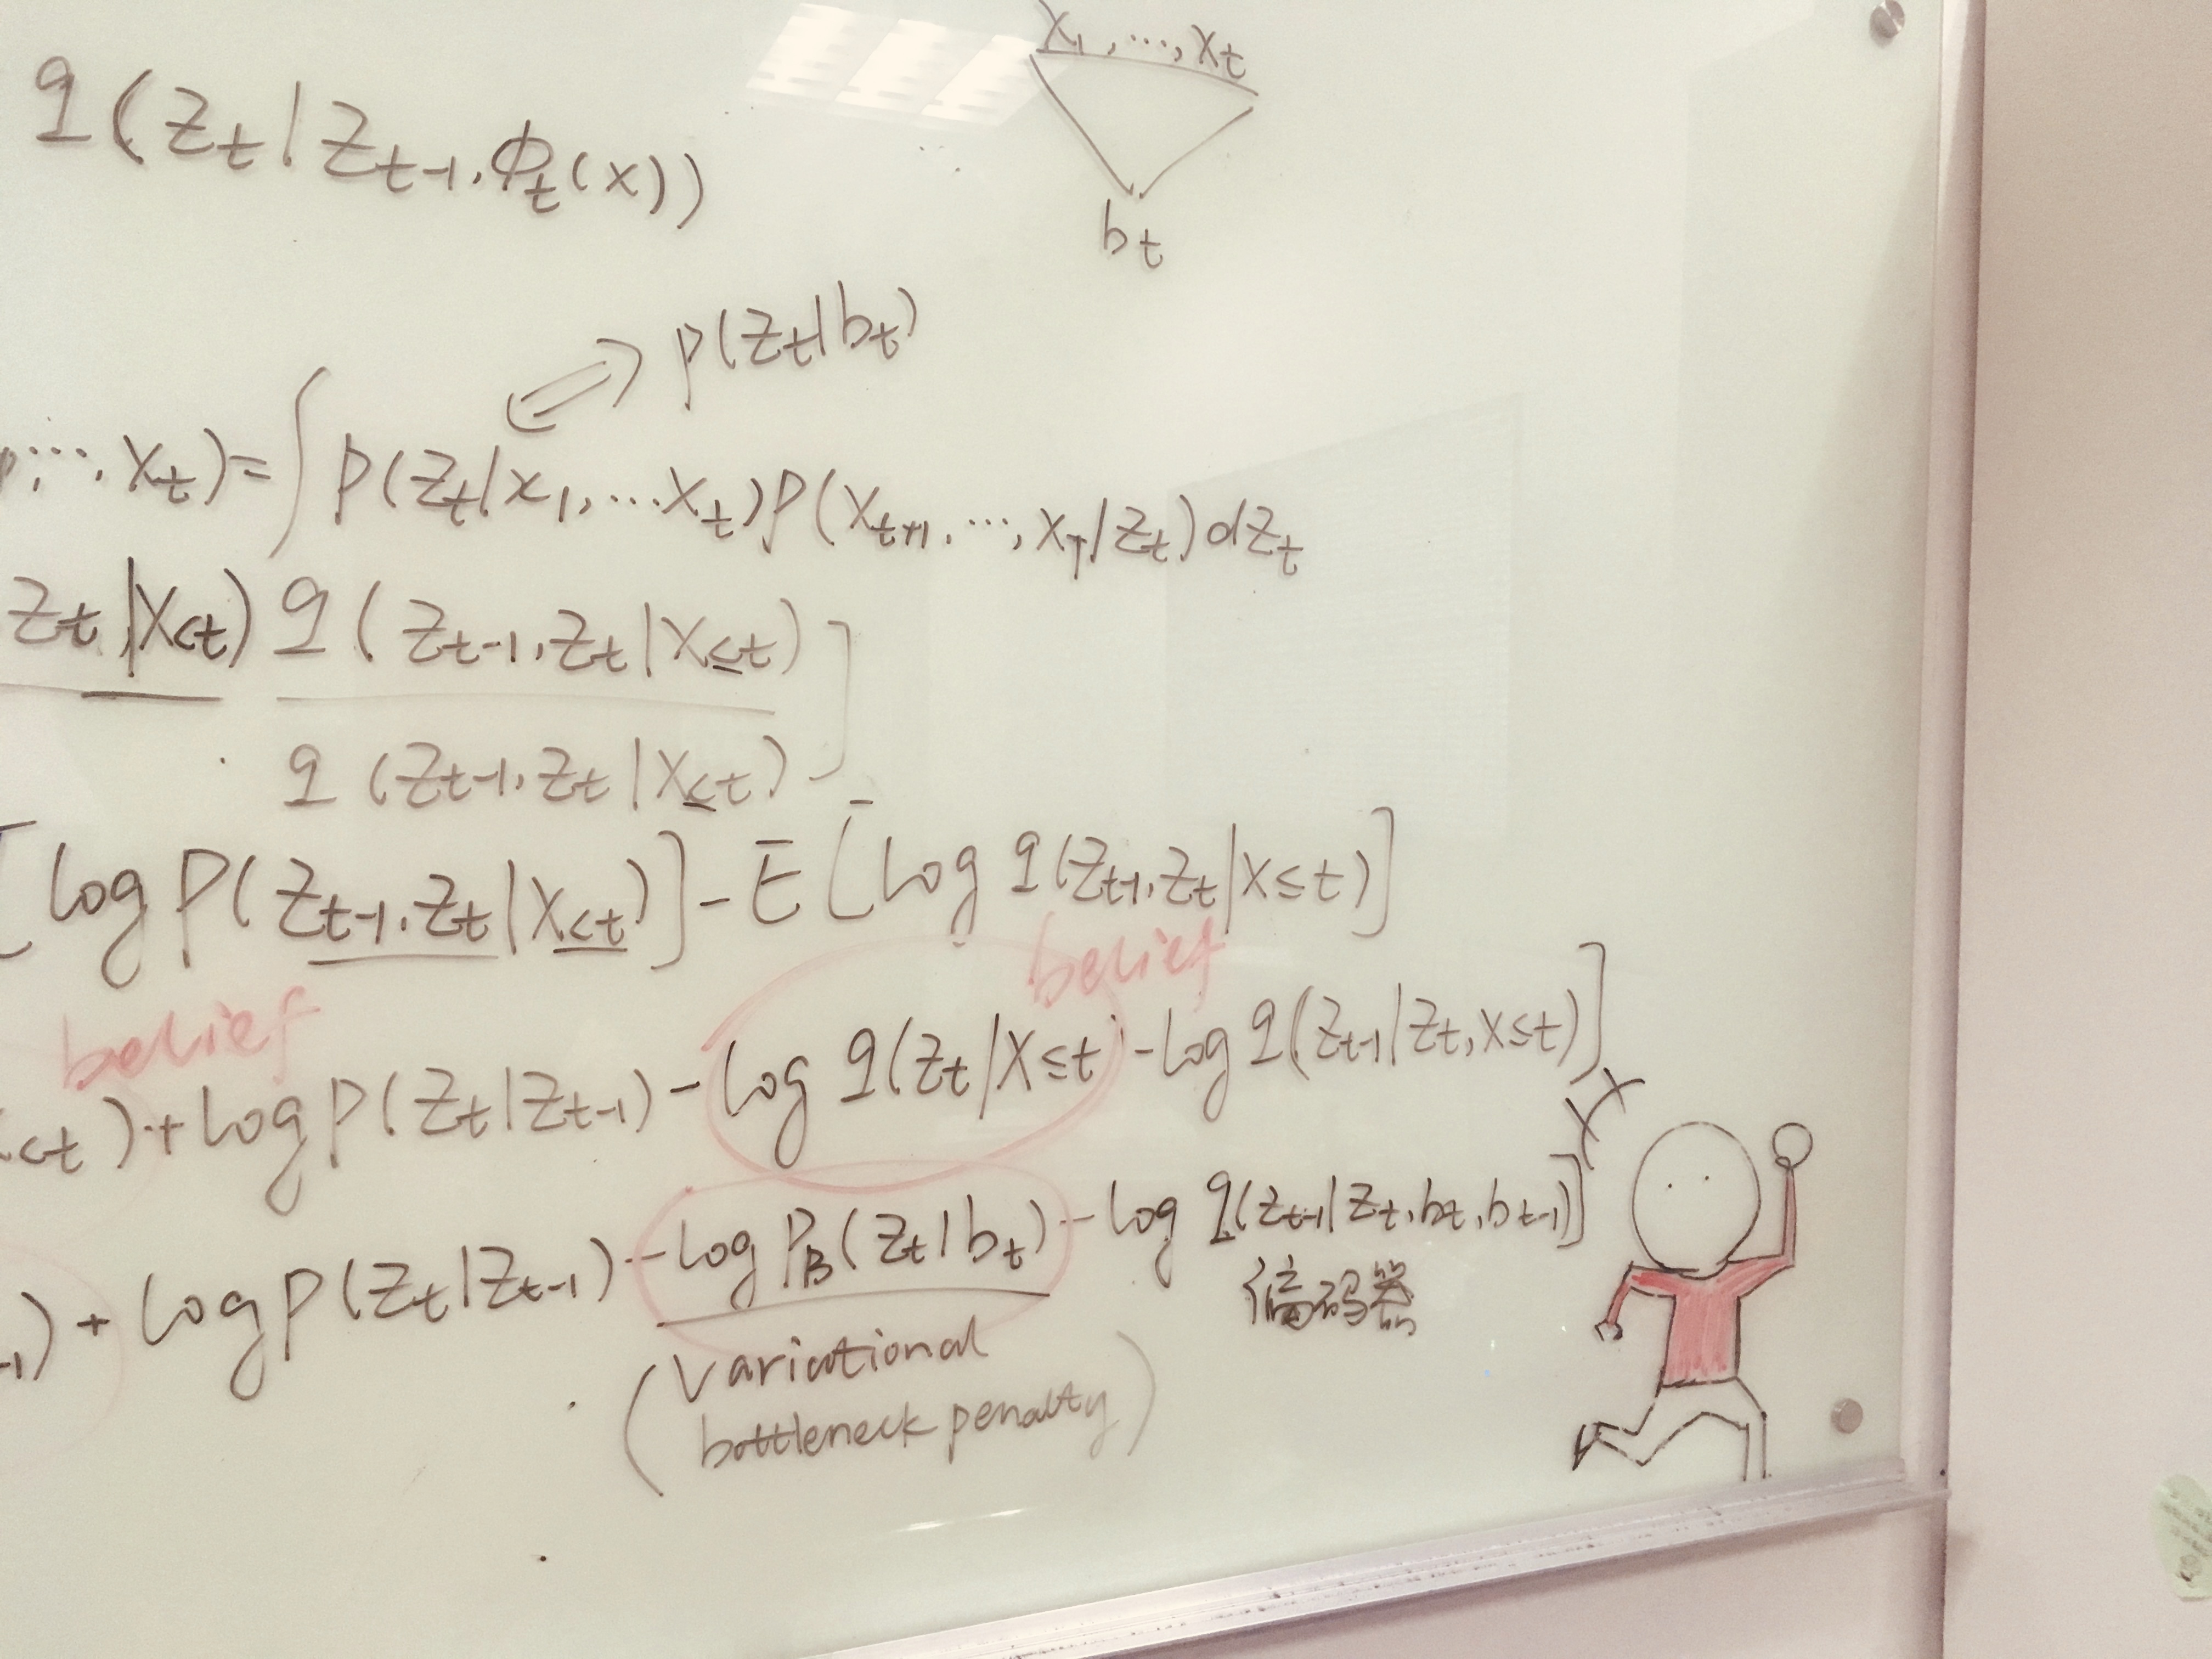 x₁, ..., xₜ
q(zₜ|zₜ₋₁, φₜ(x))
bₜ
p(zₜ|bₜ)
, ..., xₜ) = ∫ p(zₜ|x₁, ... xₜ) p(xₜ₊₁, ..., x_T|zₜ) dzₜ
zₜ|x<t) q(zₜ₋₁, zₜ|x≤t) ]
q(zₜ₋₁, zₜ|x≤t)
[log p(zₜ₋₁, zₜ|x<t)] - E[log q(zₜ₋₁, zₜ|x≤t)]
belief belief
<t) + log p(zₜ|zₜ₋₁) - log q(zₜ|x≤t) - log q(zₜ₋₁|zₜ, x≤t)]
₋₁) + log p(zₜ|zₜ₋₁) - log p_B(zₜ|bₜ) - log q(zₜ₋₁|zₜ, bₜ, bₜ₋₁)]
码器
(variational
bottleneck penalty)